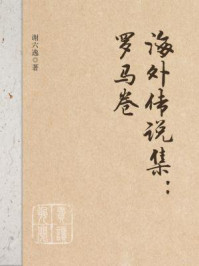 海外传说集：
罗马卷
谢六逸◎著